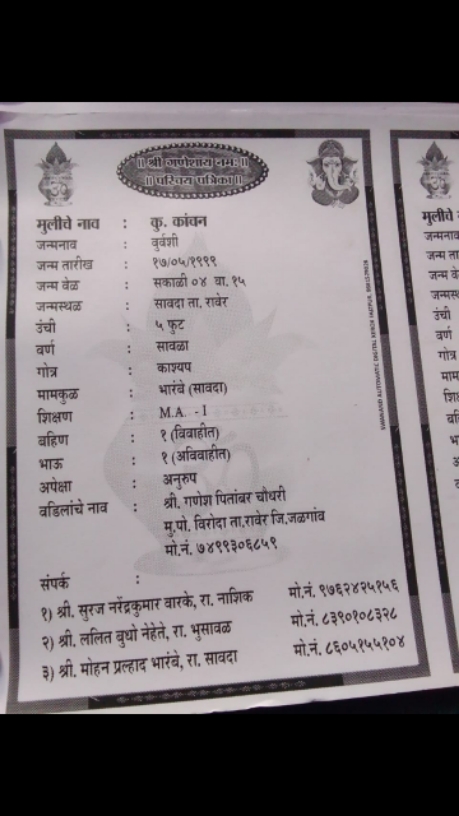 ॥ श्री गणेशाय नमः ॥
॥ परिचय पत्रिका ॥
मुलीचे नाव : कु. कांचन
जन्मनाव : वुर्वशी
जन्म तारीख : १७/०५/१९९९
जन्म वेळ : सकाळी ०४ वा. १५
जन्मस्थळ : सावदा ता. रावेर
उंची : ५ फुट
वर्ण : सावळा
गोत्र : काश्यप
मामकुळ : भारंबे (सावदा)
शिक्षण : M.A. - I
बहिण : १ (विवाहीत)
भाऊ : १ (अविवाहीत)
अपेक्षा : अनुरुप
वडिलांचे नाव : श्री. गणेश पितांबर चौधरी
मु.पो. विरोदा ता.रावेर जि.जळगांव
मो.नं. ७४९९३०६८५९
संपर्क :
१) श्री. सुरज नरेंद्रकुमार वारके, रा. नाशिक मो.नं. ९७६२४२५१५६
२) श्री. ललित बुधो नेहेते, रा. भुसावळ मो.नं. ८३९०१०८३२८
३) श्री. मोहन प्रल्हाद भारंबे, रा. सावदा मो.नं. ८६०५१५५१०४
मुलीचे
जन्मनाव
जन्म ता
जन्म वे
जन्मस्थ
उंची
वर्ण
गोत्र
माम